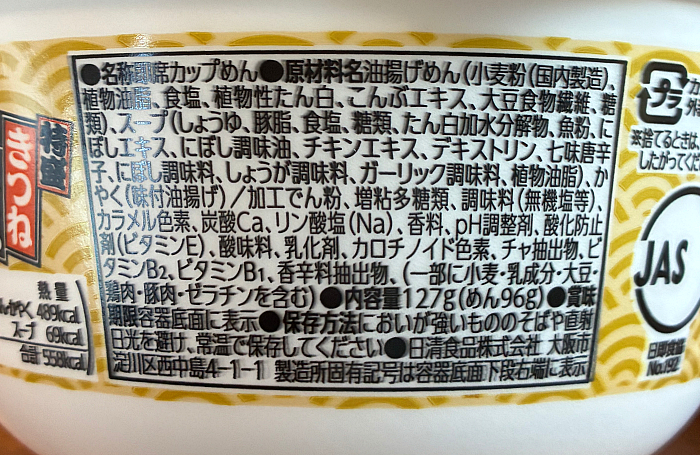 ●名称即席カップめん●原材料名油揚げめん(小麦粉(国内製造)、
植物油脂、食塩、植物性たん白、こんぶエキス、大豆食物繊維、糖
類)、スープ(しょうゆ、豚脂、食塩、糖類、たん白加水分解物、魚粉、に
ぼしエキス、にぼし調味油、チキンエキス、デキストリン、七味唐辛
子、にぼし調味料、しょうが調味料、ガーリック調味料、植物油脂)、か
やく(味付油揚げ)/加工でん粉、増粘多糖類、調味料(無機塩等)、
カラメル色素、炭酸Ca、リン酸塩(Na)、香料、pH調整剤、酸化防止
剤(ビタミンE)、酸味料、乳化剤、カロチノイド色素、チャ抽出物、ビ
タミンB2、ビタミンB1、香辛料抽出物、(一部に小麦・乳成分・大豆・
鶏肉・豚肉・ゼラチンを含む)●内容量127g(めん96g)●賞味
期限容器底面に表示●保存方法においが強いもののそばや直射
日光を避け、常温で保存してください●日清食品株式会社 大阪市
淀川区西中島4-1-1 製造所固有記号は容器底面下段右端に表示
特盛
きつね
熱量
めん・かやく 489kcal
スープ 69kcal
合計 558kcal
プラ
カ
※捨てるときは、
したがってくだ
JAS
日即食協
No.192